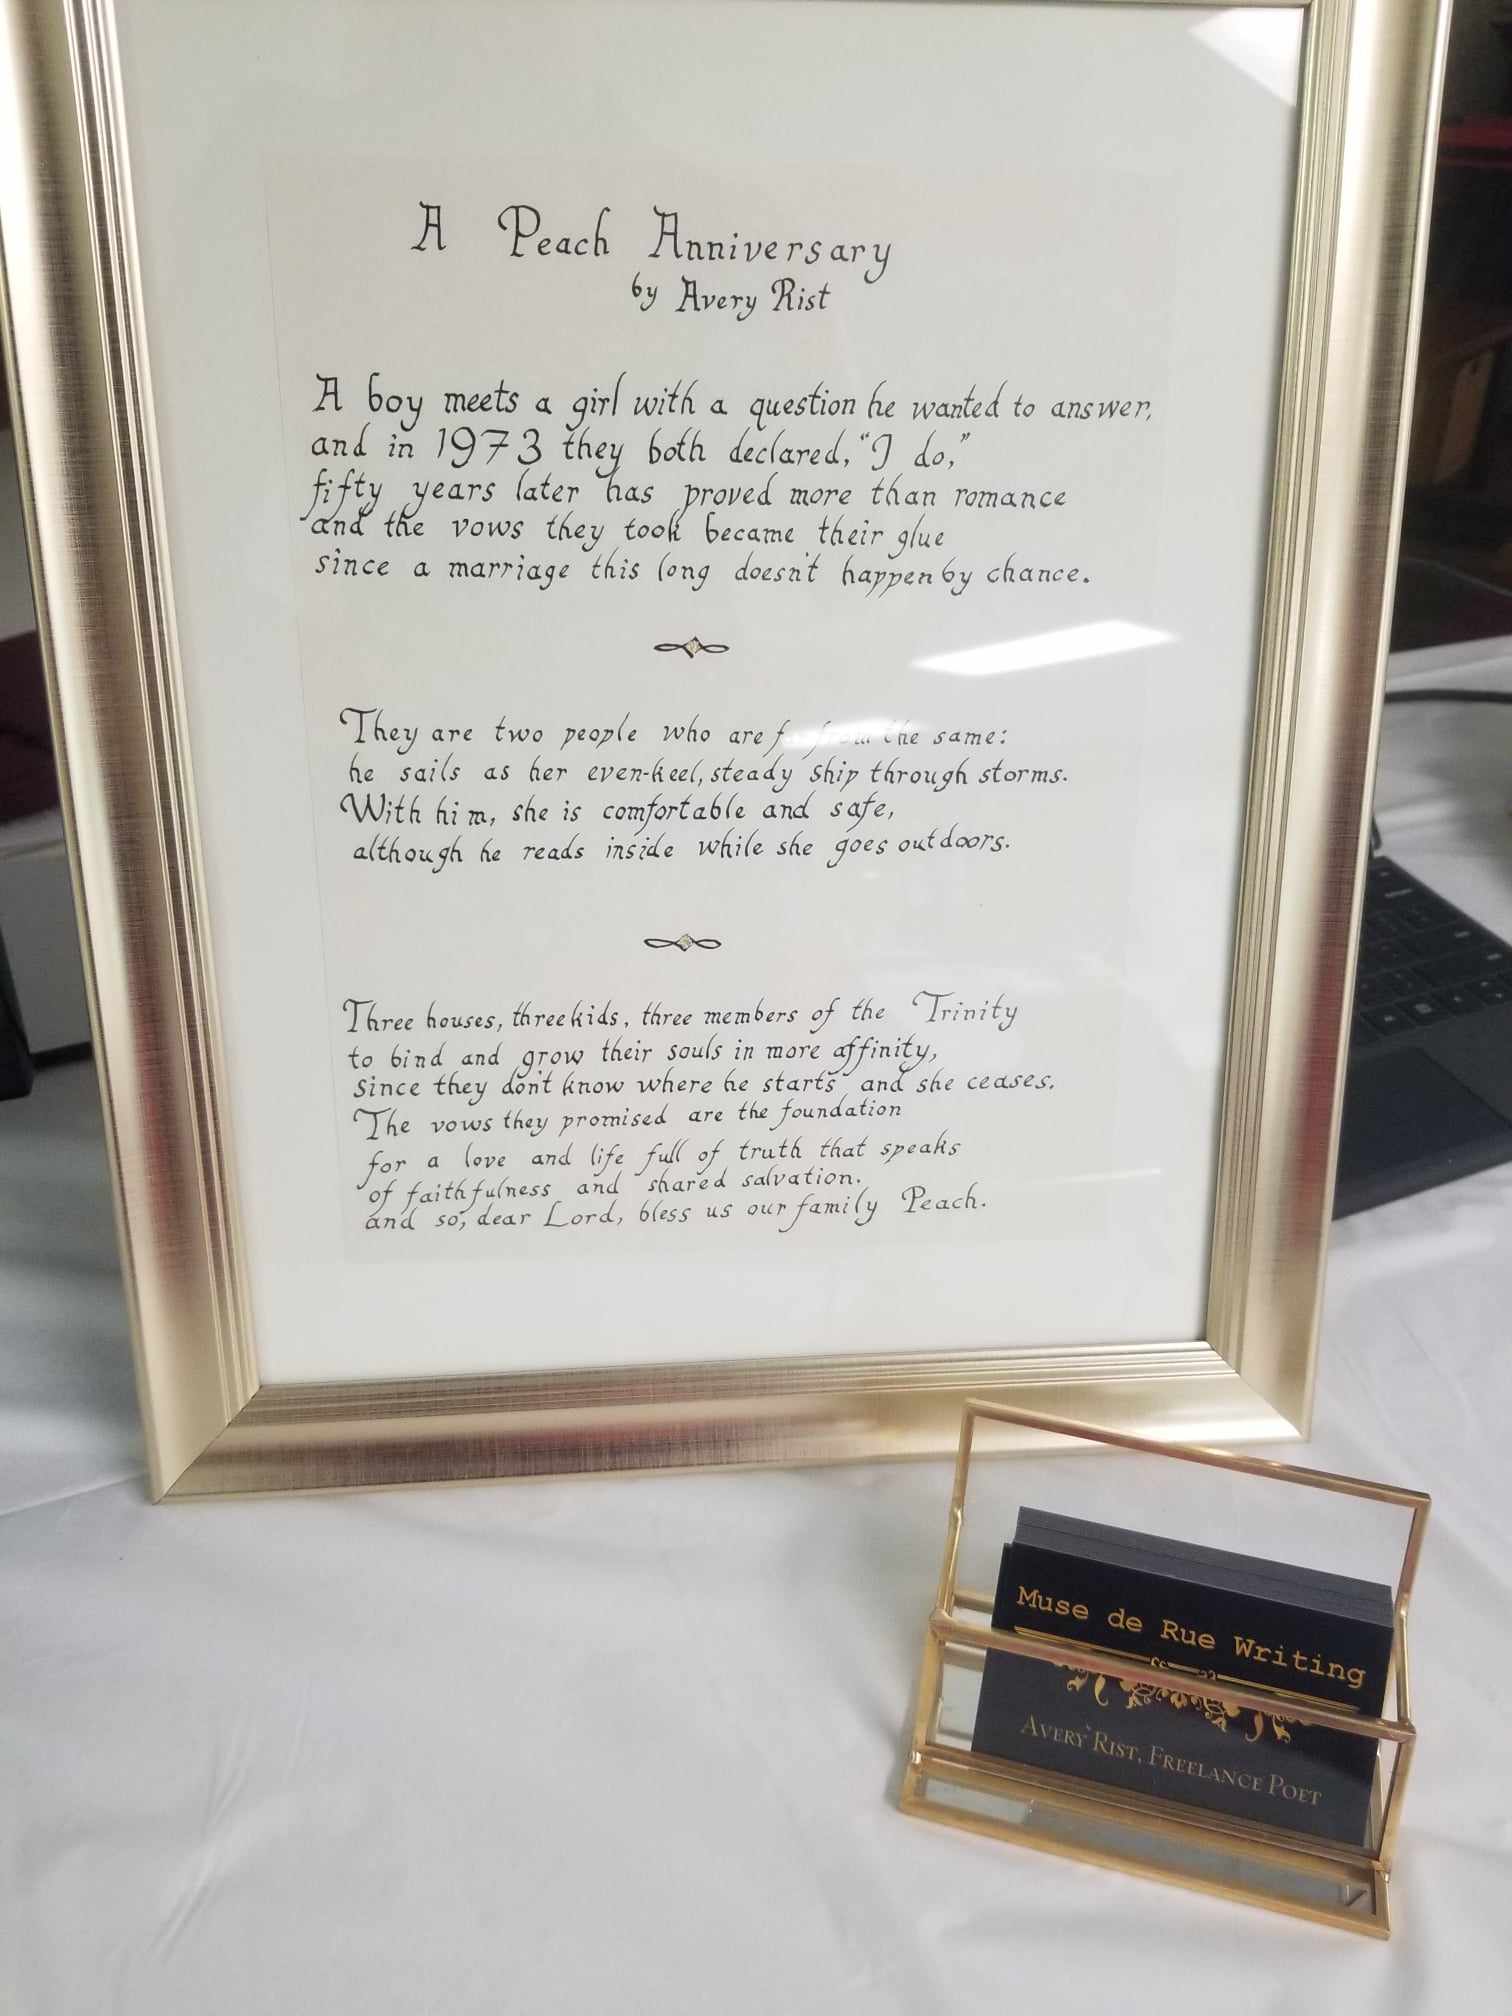 A Peach Anniversary
by Avery Rist
A boy meets a girl with a question he wanted to answer,
and in 1973 they both declared, "I do,"
fifty years later has proved more than romance
and the vows they took became their glue
since a marriage this long doesn't happen by chance.
They are two people who are far from the same:
he sails as her even-keel, steady ship through storms.
With him, she is comfortable and safe,
although he reads inside while she goes outdoors.
Three houses, three kids, three members of the Trinity
to bind and grow their souls in more affinity,
since they don't know where he starts and she ceases.
The vows they promised are the foundation
for a love and life full of truth that speaks
of faithfulness and shared salvation.
and so, dear Lord, bless us our family Peach.
Muse de Rue Writing
Avery Rist, Freelance Poet